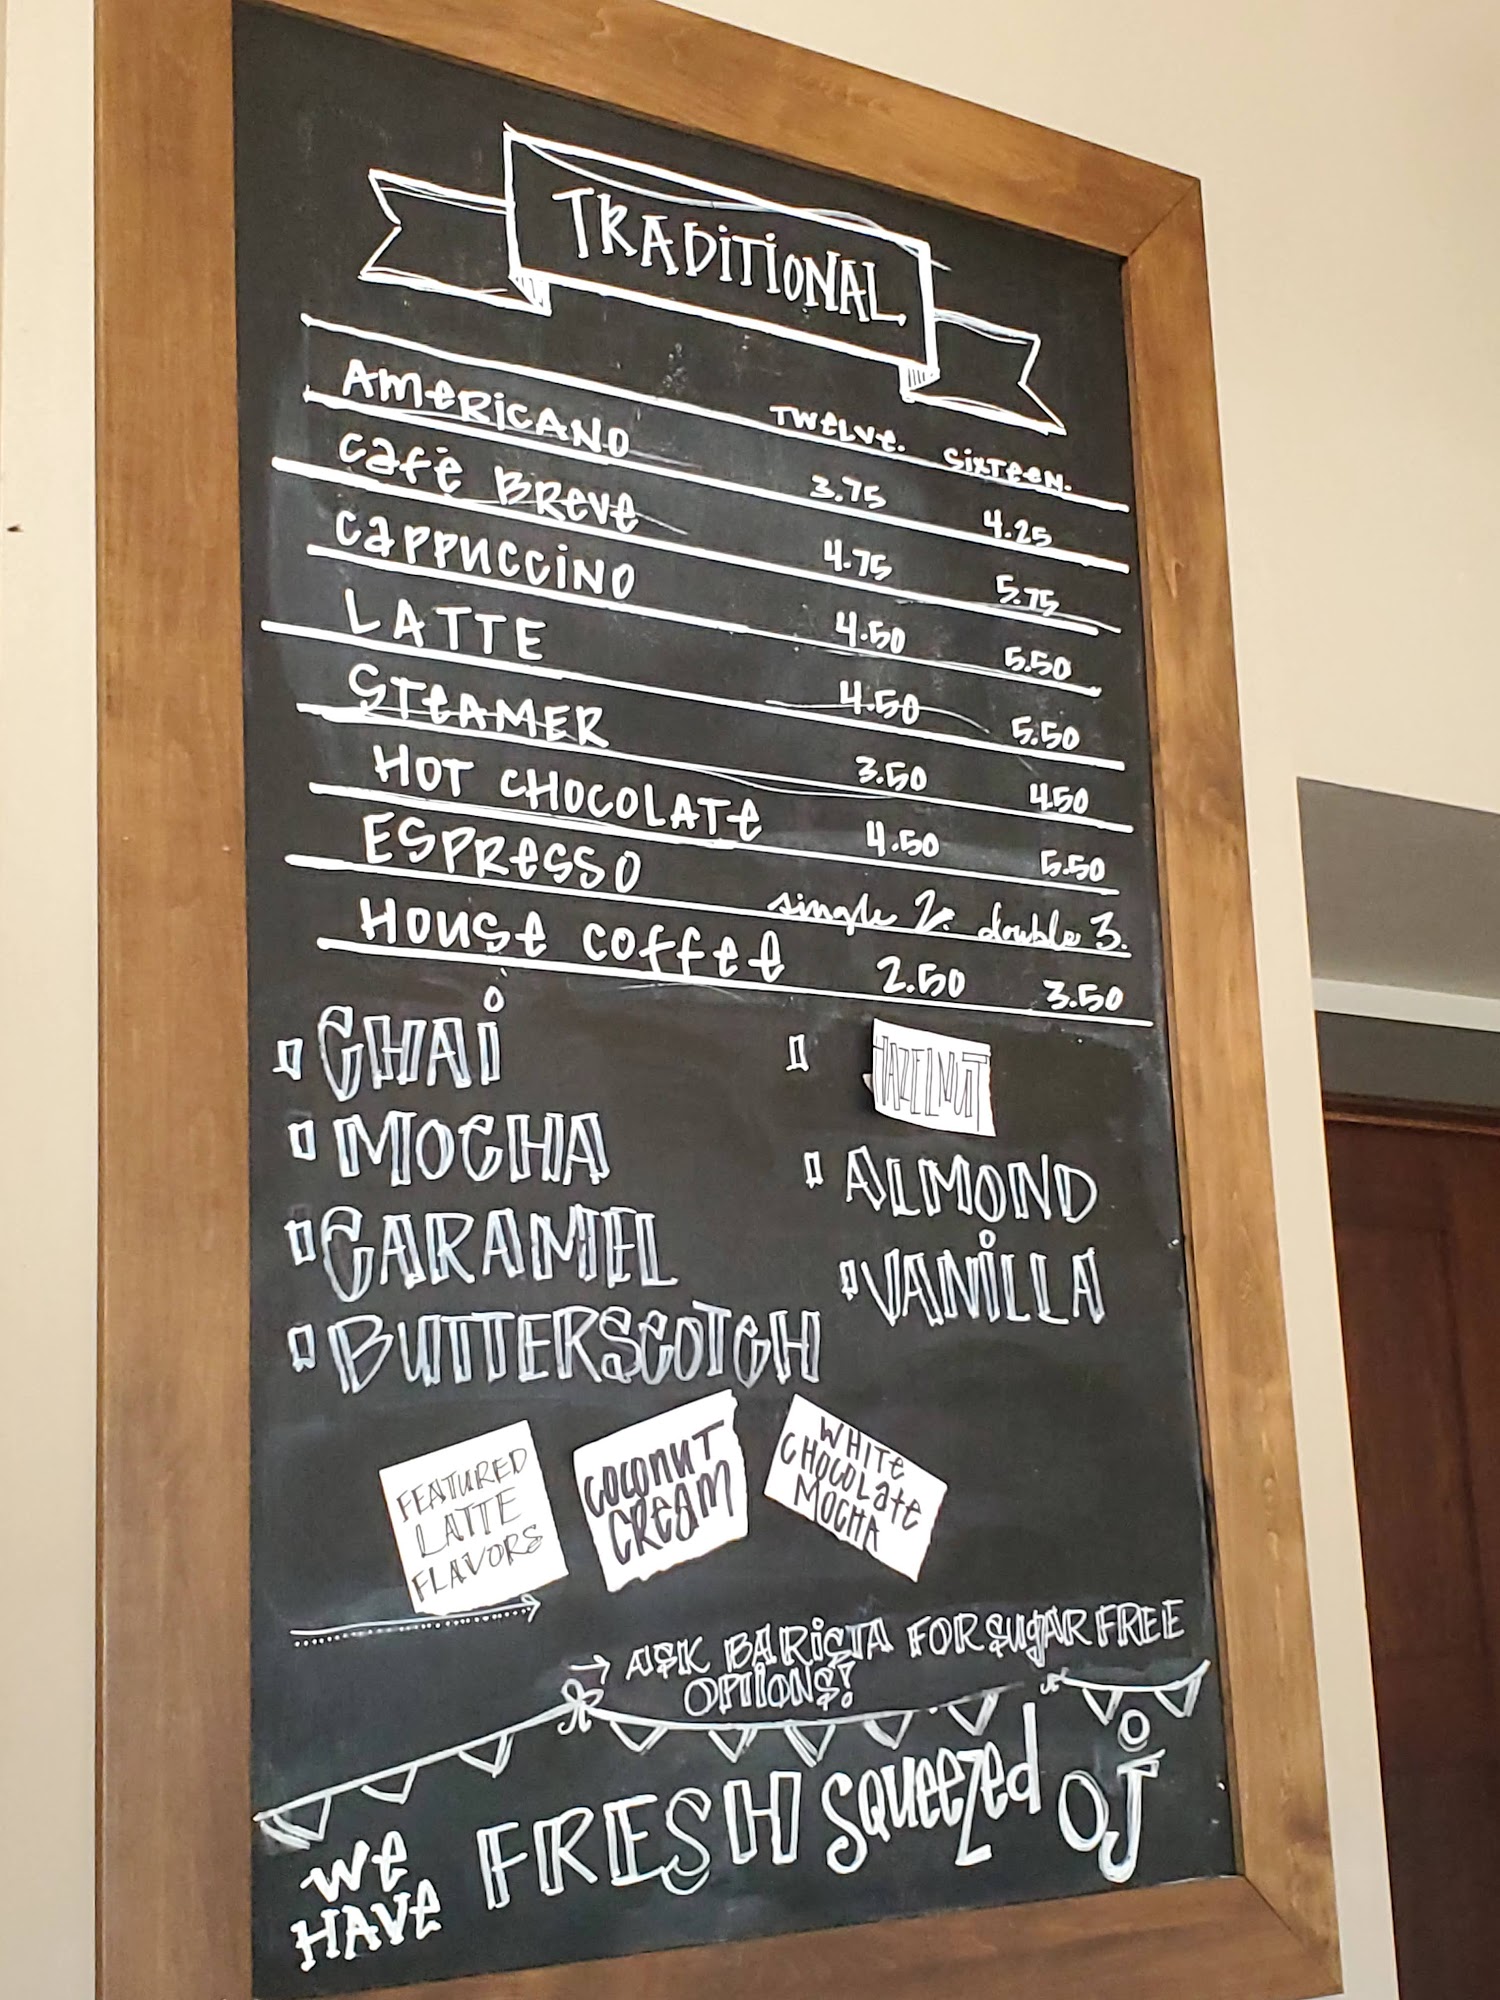 TRADITIONAL
TWELVE. SIXTEEN.
AMERICANO 3.75 4.25
CAFÉ BREVE 4.75 5.75
CAPPUCCINO 4.50 5.50
LATTE 4.50 5.50
STEAMER 3.50 4.50
HOT CHOCOLATE 4.50 5.50
ESPRESSO single 2. double 3.
HOUSE COFFEE 2.50 3.50
CHAI
MOCHA
CARAMEL
BUTTERSCOTCH
HAZELNUT
ALMOND
VANILLA
FEATURED
LATTE
FLAVORS
COCONUT
CREAM
WHITE
CHOCOLATE
MOCHA
→ ASK BARISTA FOR SUGAR FREE
OPTIONS!
WE
HAVE
FRESH SQUEEZED OJ